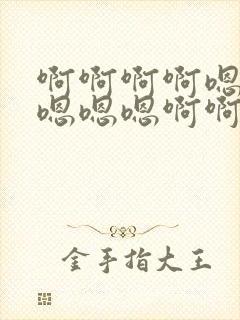 啊啊啊啊嗯
嗯嗯嗯啊啊
金手指大王